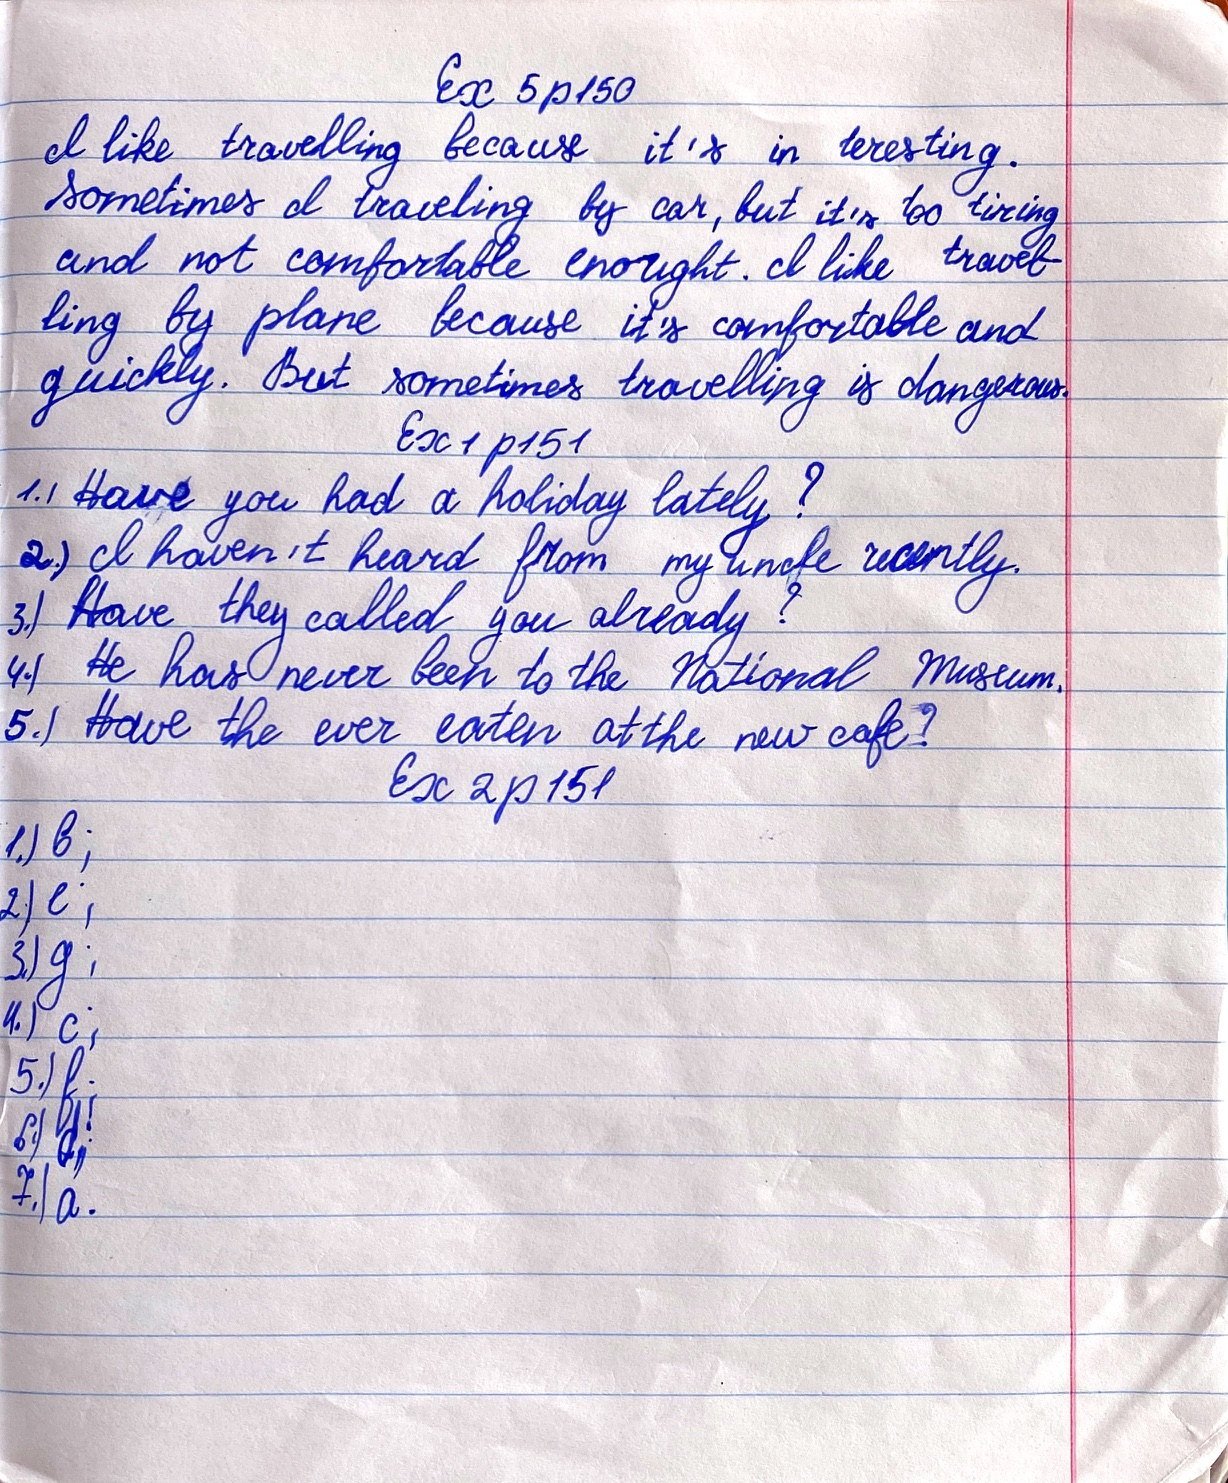 Ex 5 p 150
I like travelling because it's in teresting.
Sometimes I traveling by car, but it's too tiring
and not comfortable enought. I like travel-
ling by plane because it's comfortable and
quickly. But sometimes travelling is dangerous.
Ex 1 p 151
1.) Have you had a holiday lately?
2.) I haven't heard from my uncle recently.
3.) Have they called you already?
4.) He has never been to the National Museum.
5.) Have the ever eaten at the new cafe?
Ex 2 p 151
1.) b;
2.) e;
3.) g;
4.) c;
5.) f;
6.) d;
7.) a.